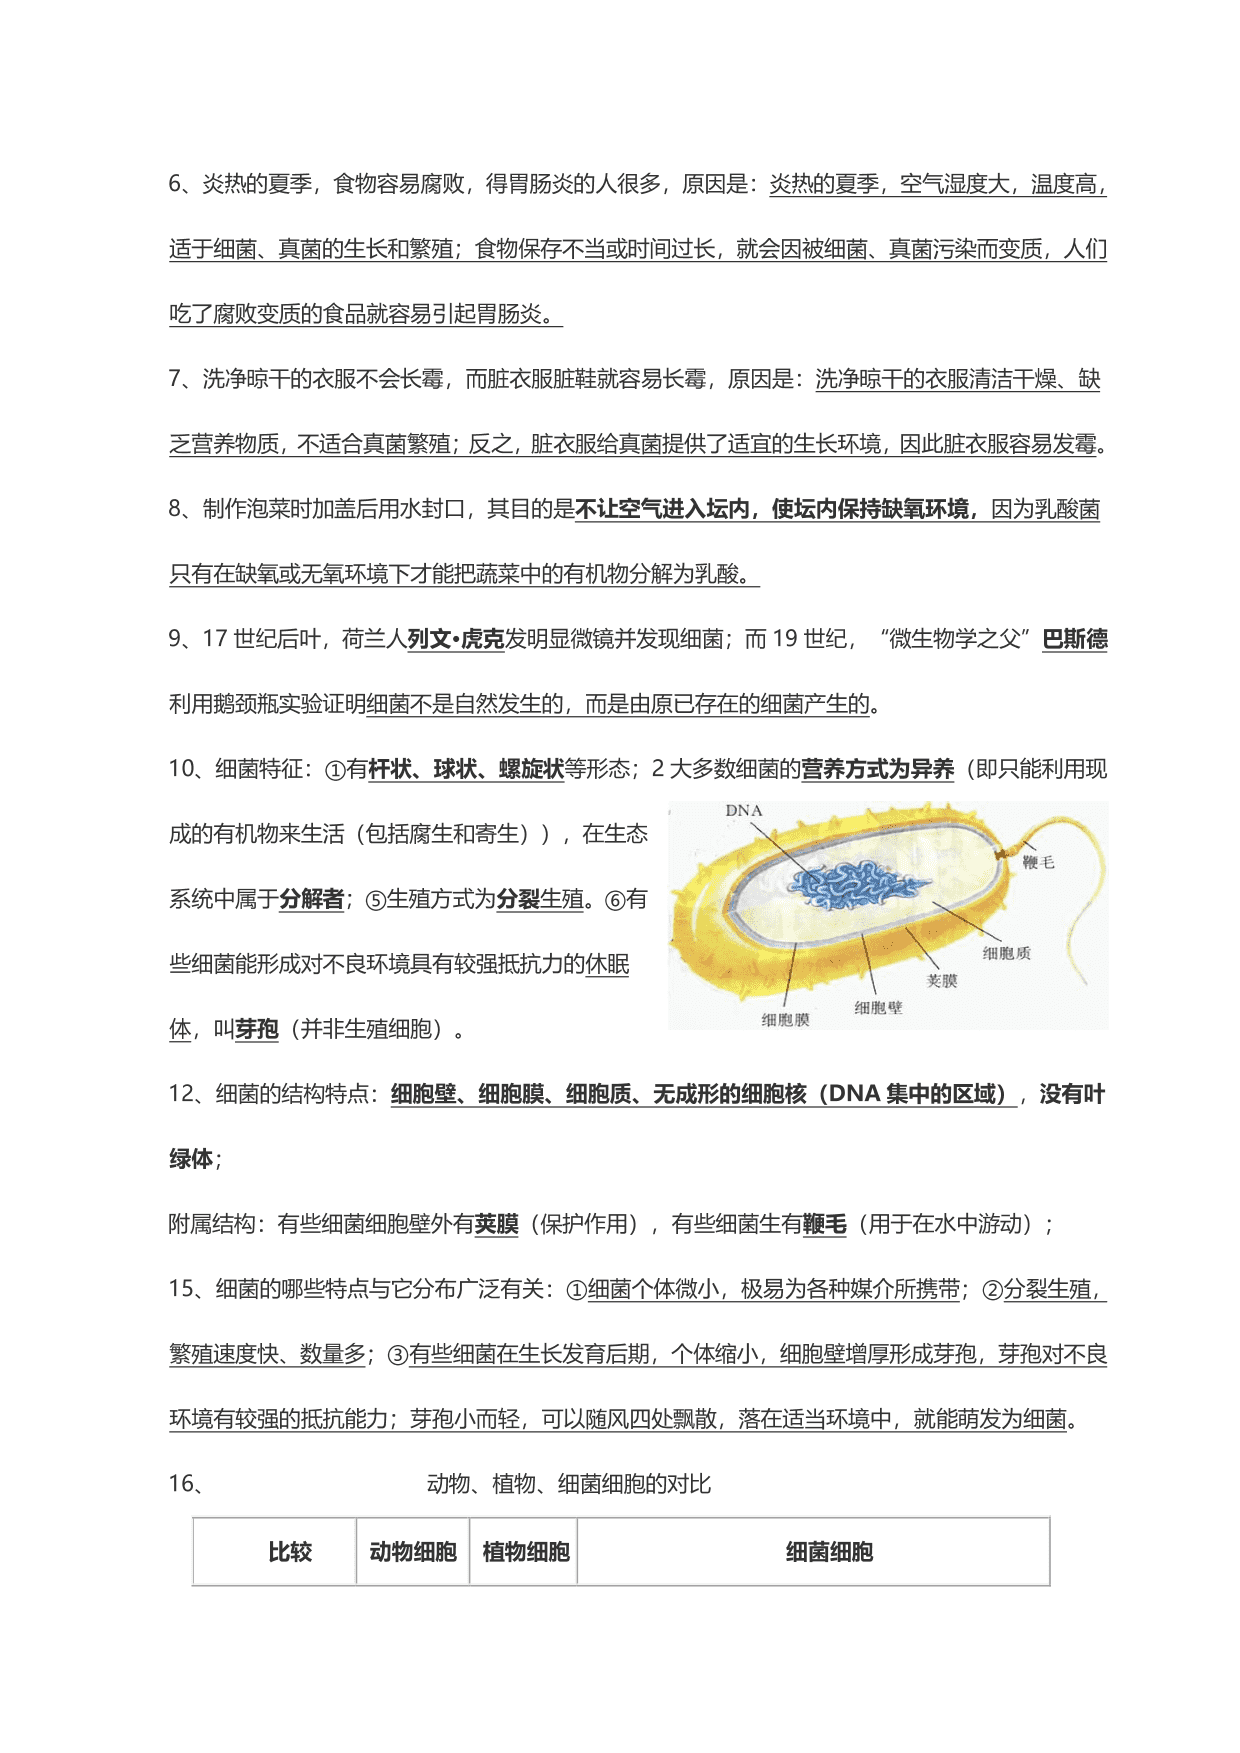 6、炎热的夏季，食物容易腐败，得胃肠炎的人很多，原因是：炎热的夏季，空气湿度大，温度高，
适于细菌、真菌的生长和繁殖；食物保存不当或时间过长，就会因被细菌、真菌污染而变质，人们
吃了腐败变质的食品就容易引起胃肠炎。
7、洗净晾干的衣服不会长霉，而脏衣服脏鞋就容易长霉，原因是：洗净晾干的衣服清洁干燥、缺
乏营养物质，不适合真菌繁殖；反之，脏衣服给真菌提供了适宜的生长环境，因此脏衣服容易发霉。
8、制作泡菜时加盖后用水封口，其目的是不让空气进入坛内，使坛内保持缺氧环境，因为乳酸菌
只有在缺氧或无氧环境下才能把蔬菜中的有机物分解为乳酸。
9、17 世纪后叶，荷兰人列文•虎克发明显微镜并发现细菌；而 19 世纪，“微生物学之父”巴斯德
利用鹅颈瓶实验证明细菌不是自然发生的，而是由原已存在的细菌产生的。
10、细菌特征：①有杆状、球状、螺旋状等形态；2 大多数细菌的营养方式为异养（即只能利用现
成的有机物来生活（包括腐生和寄生）），在生态
系统中属于分解者；⑤生殖方式为分裂生殖。⑥有
些细菌能形成对不良环境具有较强抵抗力的休眠
体，叫芽孢（并非生殖细胞）。
DNA
鞭毛
细胞质
荚膜
细胞壁
细胞膜
12、细菌的结构特点：细胞壁、细胞膜、细胞质、无成形的细胞核（DNA 集中的区域），没有叶
绿体；
附属结构：有些细菌细胞壁外有荚膜（保护作用），有些细菌生有鞭毛（用于在水中游动）；
15、细菌的哪些特点与它分布广泛有关：①细菌个体微小，极易为各种媒介所携带；②分裂生殖，
繁殖速度快、数量多；③有些细菌在生长发育后期，个体缩小，细胞壁增厚形成芽孢，芽孢对不良
环境有较强的抵抗能力；芽孢小而轻，可以随风四处飘散，落在适当环境中，就能萌发为细菌。
16、 动物、植物、细菌细胞的对比
比较 动物细胞 植物细胞 细菌细胞